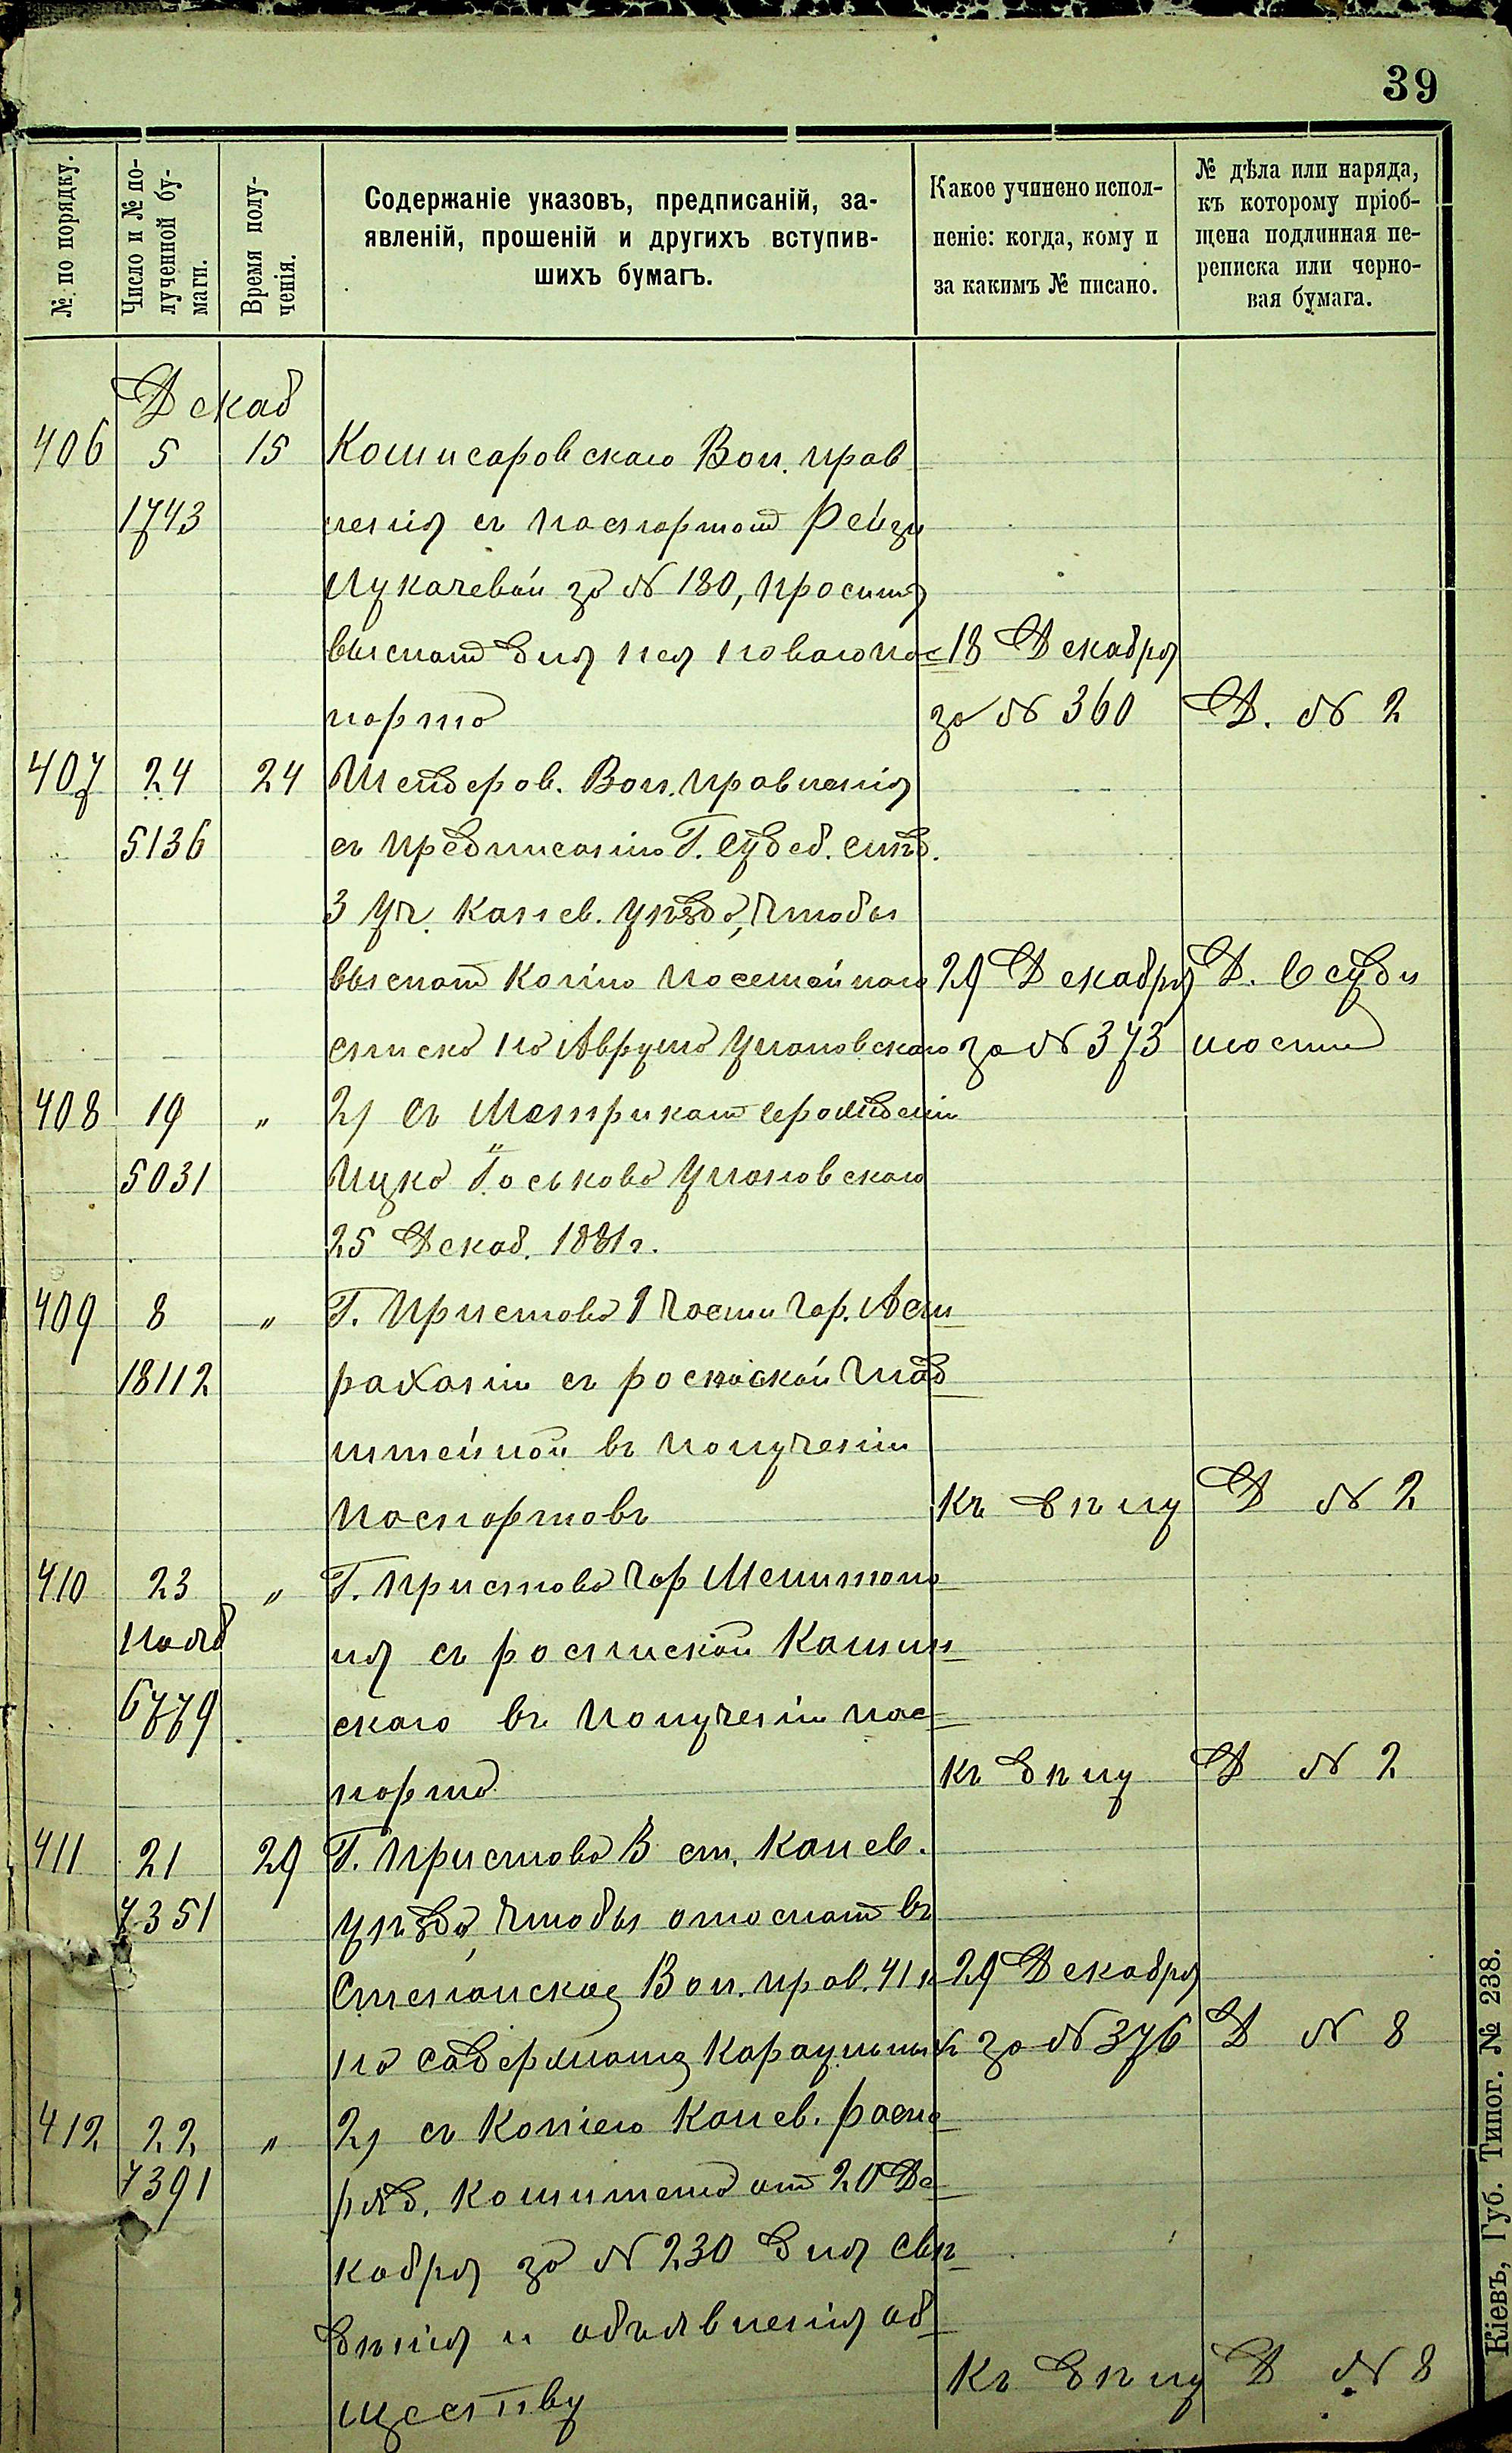 39
№ по порядку.
Число и № по-
лученной бу-
маги.
Время полу-
ченія.
Содержаніе указовъ, предписаній, за-
явленій, прошеній и другихъ вступив-
шихъ бумагъ.
Какое учинено испол-
неніе: когда, кому и
за какимъ № писано.
№ дѣла или наряда,
къ которому пріоб-
щена подлинная пе-
реписка или черно-
вая бумага.
Декаб
406 5 15 Комисаровскаго Вол. прав
1743 ленія съ паспортом Рейзи
Лукачевой за № 180, просит
выслать для нея новаго пас- 18 Декабря
порта за № 360 Д. № 2
407 24 24 Шендеров. Вол. правленія
5136 съ предписанію Г. Судеб. слѣд.
3 уч. Канев. уѣзда, чтобы
выслать копію посемейнаго 29 Декабря Д. о суди
списка на Аврума Улановскаго за № 373 мости
408 19 " 2) съ Метрикат о рождени
5031 Ицка Госькова Улановскаго
25 Декаб. 1881 г.
409 8 " Г. Пристава 1 части гор. Аст
18112 рахани съ роспиской Глад
штейной въ полученіи
паспортовъ Къ дѣлу Д № 2
410 23 " Г. Пристава гор Мелитопо
Нояб ля съ роспиской Камин
6779 скаго въ полученіи пас-
порта къ дѣлу Д № 2
411 21 29 Г. Пристава 3 ст. Канев.
7351 уѣзда, чтобы отослать въ
Степанское Вол. прав. 41 к 29 Декабря
на содержаніе Караульных за № 376 Д № 8
412 22 " 2) съ Копіею Канев. распо
7391 ряд. Комитета от 20 Де
кабря за № 230 для свѣ
дѣнія и объявленія об
ществу Къ дѣлу Д № 8
Кіевъ, Губ. Типог. № 238.